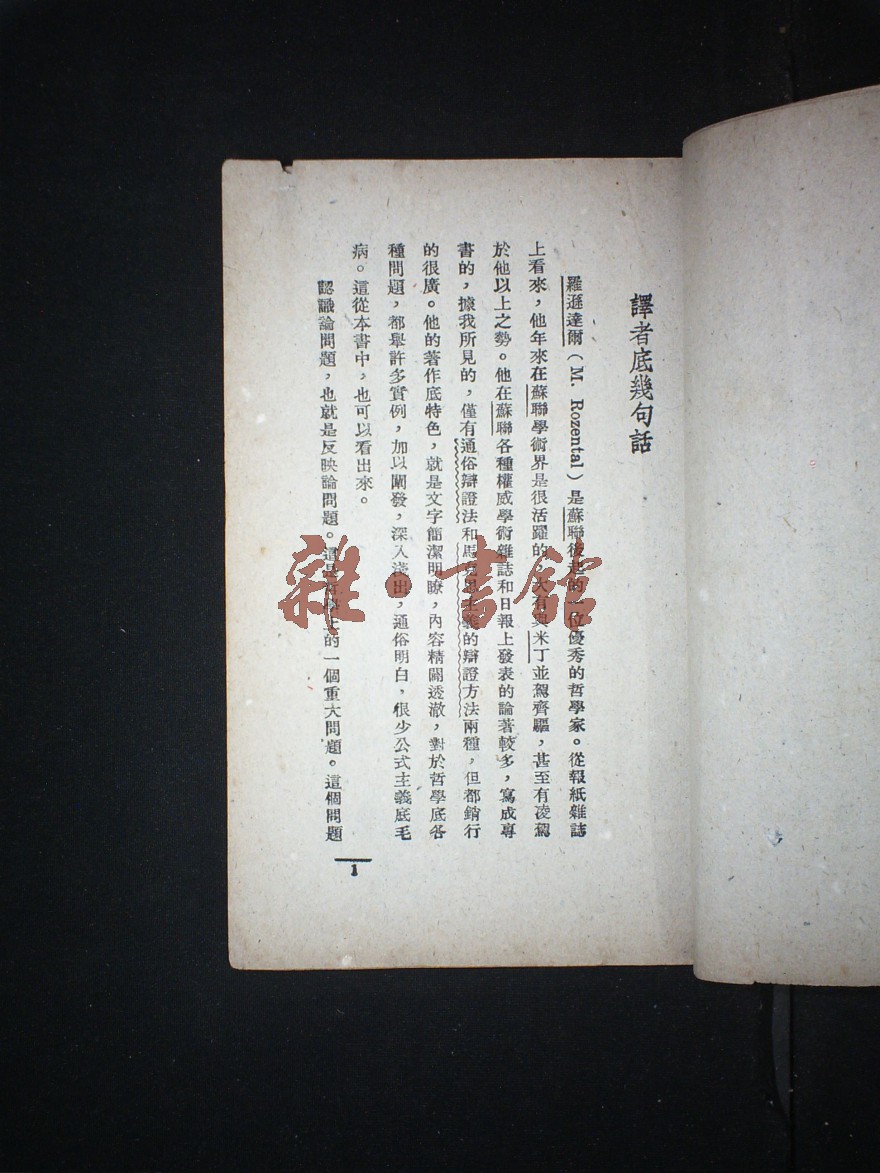 譯者底幾句話
羅遜達爾（M. Rozental）是蘇聯後起的一位優秀的哲學家。從報紙雜誌
上看來，他年來在蘇聯學術界是很活躍的，大有與米丁並駕齊驅，甚至有凌駕
於他以上之勢。他在蘇聯各種權威學術雜誌和日報上發表的論著較多，寫成專
書的，據我所見的，僅有通俗辯證法和馬克思主義的辯證方法兩種，但都銷行
的很廣。他的著作底特色，就是文字簡潔明瞭，內容精闢透澈，對於哲學底各
種問題，都舉許多實例，加以闡發，深入淺出，通俗明白，很少公式主義底毛
病。這從本書中，也可以看出來。
認識論問題，也就是反映論問題。這是哲學上的一個重大問題。這個問題
1
雜·書館